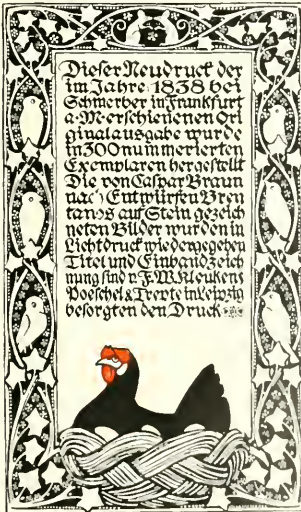 Dieser Neudruck der
im Jahre 1838 bei
Schmerber in Frankfurt
a·M·erschienenen Ori
ginalausgabe wurde
in 300 nummerierten
Exemplaren hergestellt
Die von Caspar Braun
nach Entwürfen Bren
tanos auf Stein gezeich
neten Bilder wurden in
Lichtdruck wiedergegeben
Titel und Einbandzeich
nung sind v. F.W.Kleukens
Poeschel & Trepte in Leipzig
besorgten den Druck